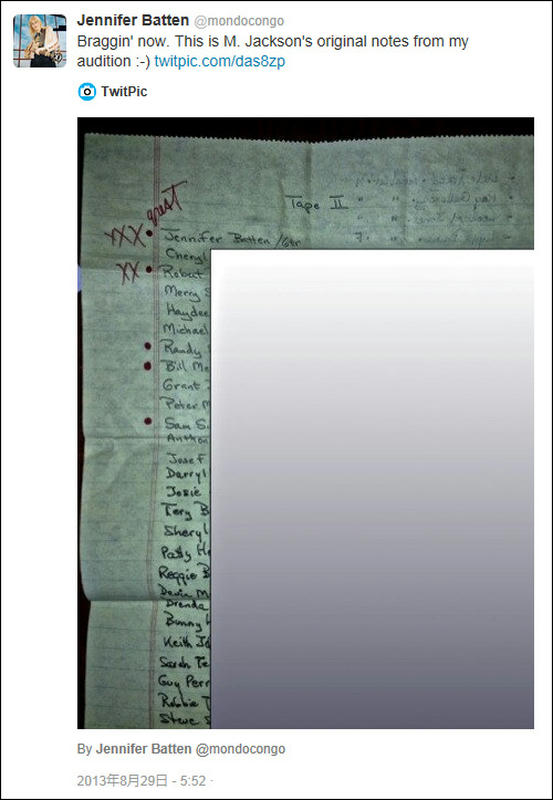 Jennifer Batten @mondocongo
Braggin' now. This is M. Jackson's original notes from my
audition :-) twitpic.com/das8zp
TwitPic
great
Tape II
XXX • Jennifer Batten / Gtr
Cheryl
XX • Robert
Merry S
Haydee
Michael
• Randy
• Bill Me
Grant
Peter M
• Sam S
Anthon
Josef
Darryl
Josie
Tery B
Sheryl
Patty He
Reggie B
Devin M
Brenda
Bunny
Keith Ja
Sarah Te
Guy Perr
Robbie T
Steve S
By Jennifer Batten @mondocongo
2013年8月29日 - 5:52 ·